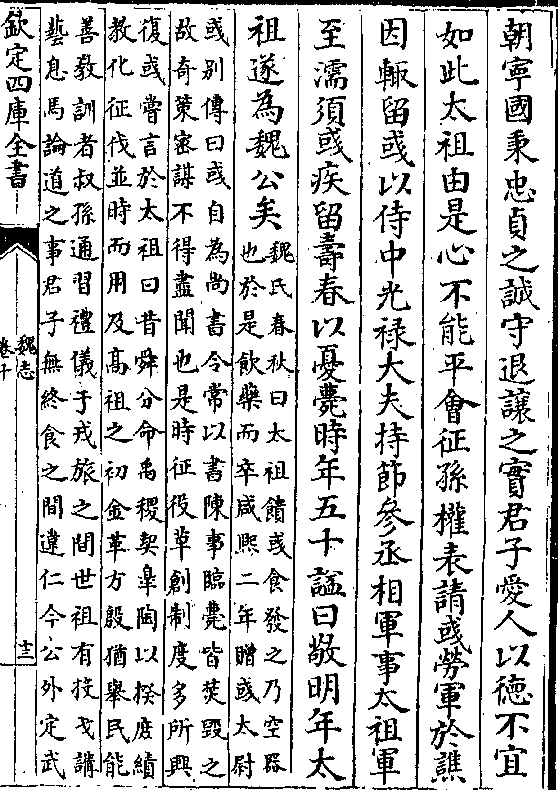 朝寧國秉忠貞之誠守退讓之實君子愛人以徳不宜
如此太祖由是心不能平會征孫權表請彧勞軍於譙
因輙留彧以侍中光禄大夫持節參丞相軍事太祖軍
至濡須彧疾留壽春以憂薨時年五十諡曰敬明年太
祖遂為魏公矣
魏氏春秋曰太祖饋彧食發之乃空器
也於是飲藥而卒咸熙二年贈彧太尉
彧别傳曰彧自為尚書令常以書陳事臨薨皆焚毀之
故奇策宻謀不得盡聞也是時征役草創制度多所興
復彧嘗言於太祖曰昔舜分命禹稷契皐陶以揆庶績
教化征伐並時而用及髙祖之初金革方殷猶舉民能
善教訓者叔孫通習禮儀于戎旅之間世祖有投戈講
藝息馬論道之事君子無終食之間違仁今公外定武
欽定四庫全書
魏志
卷十
十三